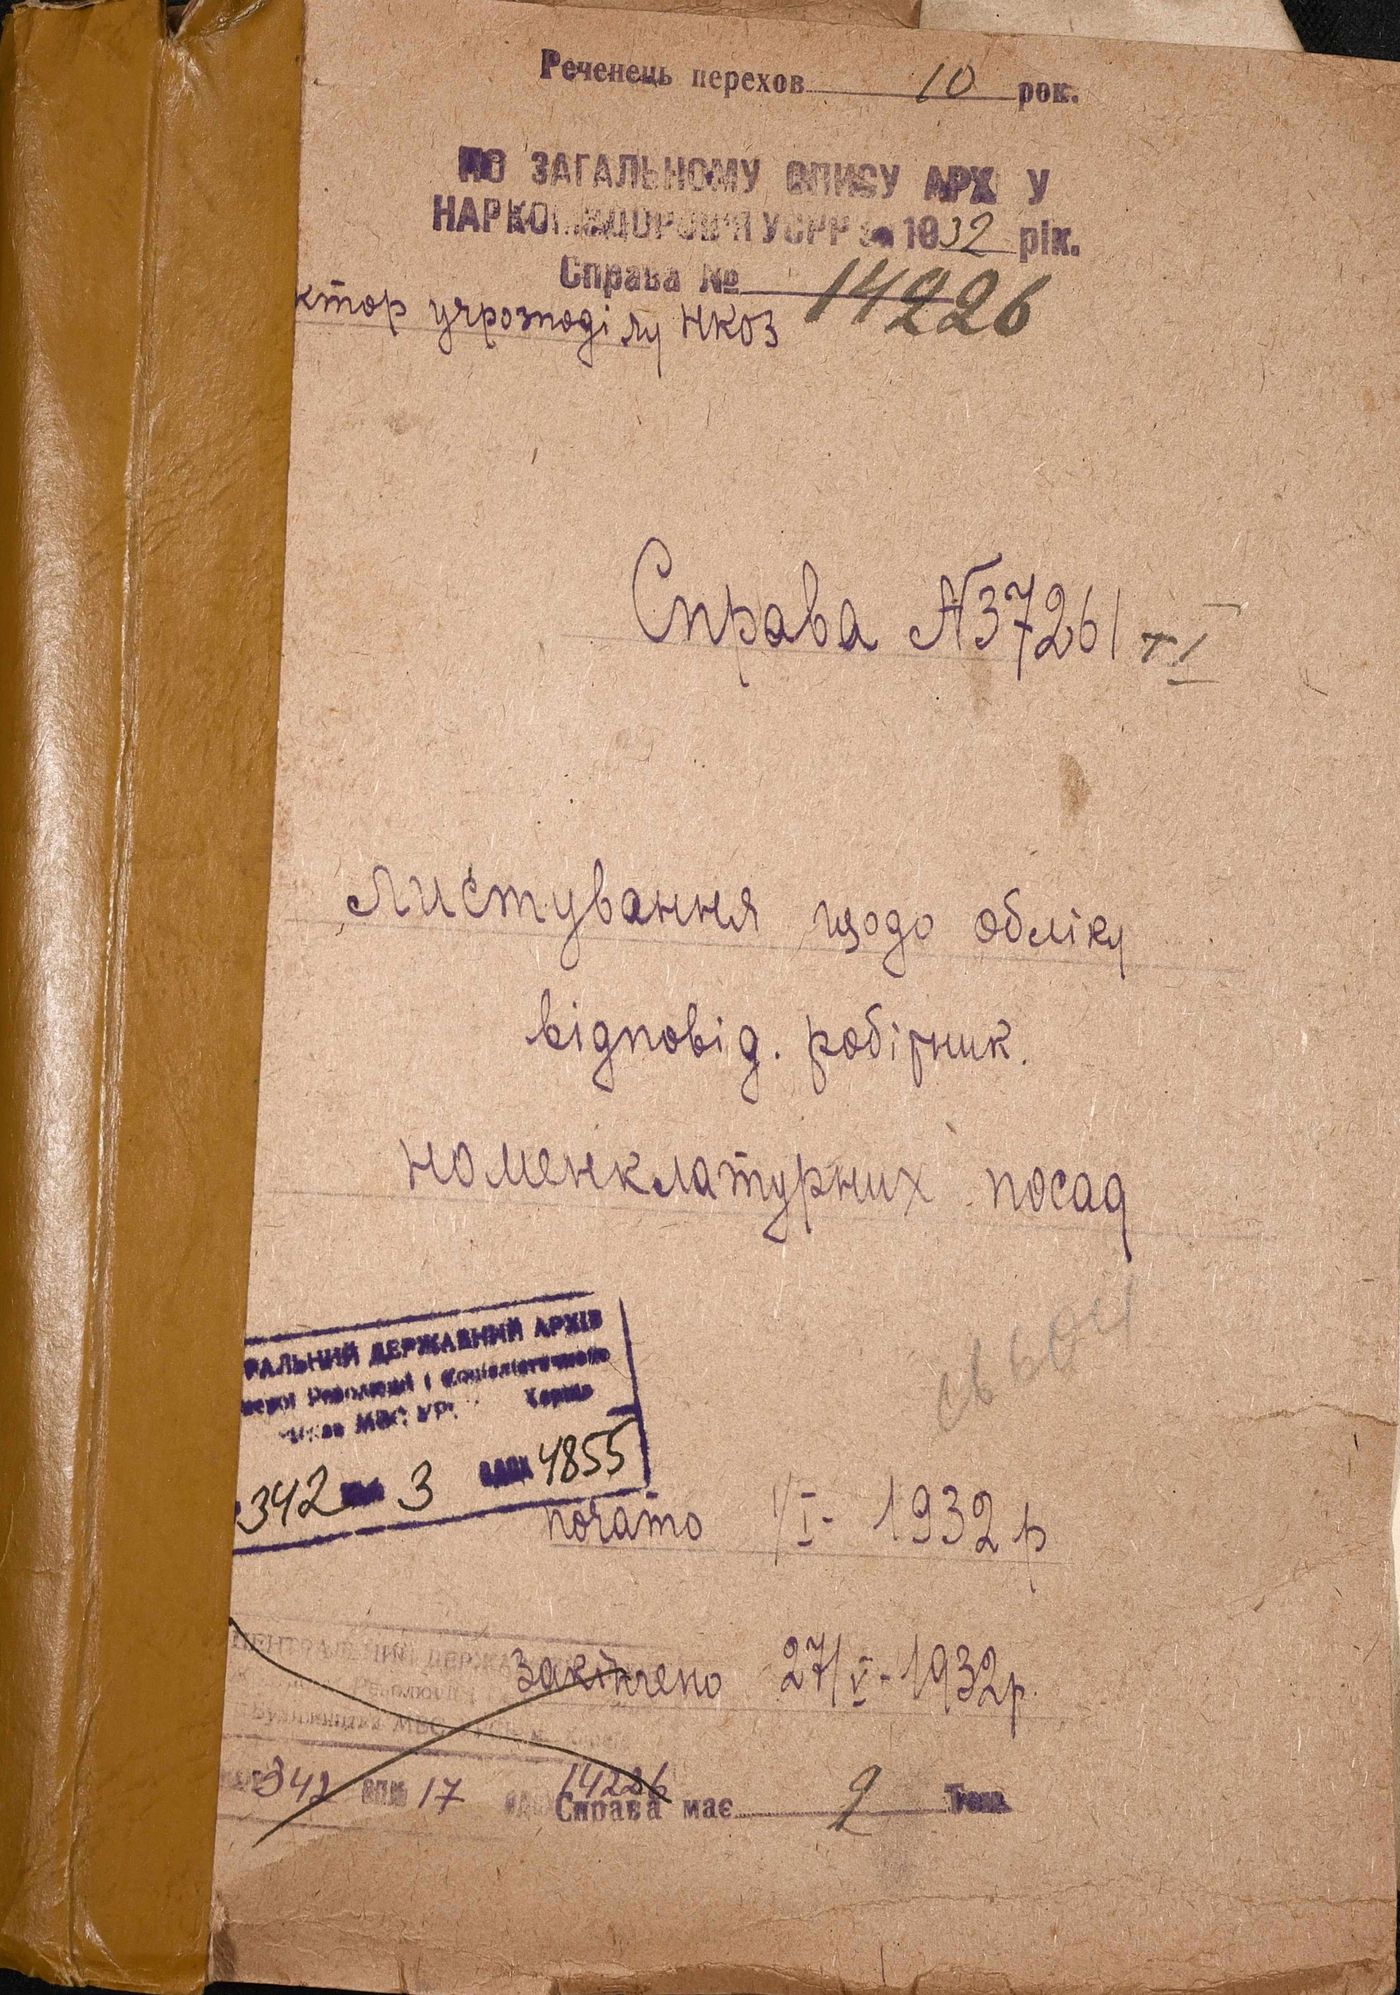 Реченець перехов 10 рок.
ПО ЗАГАЛЬНОМУ ОПИСУ АРХ У
НАРКОМЗДОРОВ'Я УСРР за 1932 рік.
Справа № 14226
ктор учрозподілу НКОЗ
Справа №37261 т I
Листування щодо обліку
відповід. робітник.
номенклатурних посад
РАЛЬНИЙ ДЕРЖАВНИЙ АРХІВ
Революції і Соціалістичного
МВС УРСР Харків
342 опис 3 одон 4855
почато 1/I- 1932 р
ЦЕНТРАЛЬНИЙ ДЕРЖА
закінчено 27/V-1932р.
Революції
Будівництва МВС
342 опис 17 14226
Справа має 2 Том.